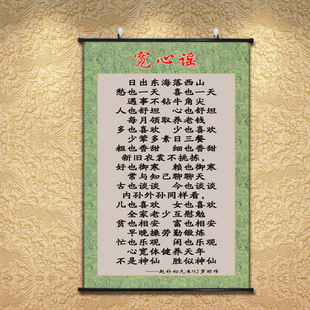 宽心谣
日出东海落西山
愁也一天 喜也一天
遇事不钻牛角尖
人也舒坦 心也舒坦
每月领取养老钱
多也喜欢 少也喜欢
少荤多素日三餐
粗也香甜 细也香甜
新旧衣裳不挑拣，
好也御寒 赖也御寒
常与知己聊聊天
古也谈谈 今也谈谈
内孙外孙同样看，
儿也喜欢 女也喜欢
全家老少互慰勉
贫也相安 富也相安
早晚操劳勤锻炼
忙也乐观 闲也乐观
心宽体健养天年
不是神仙 胜似神仙
——赵朴初先生92岁时作